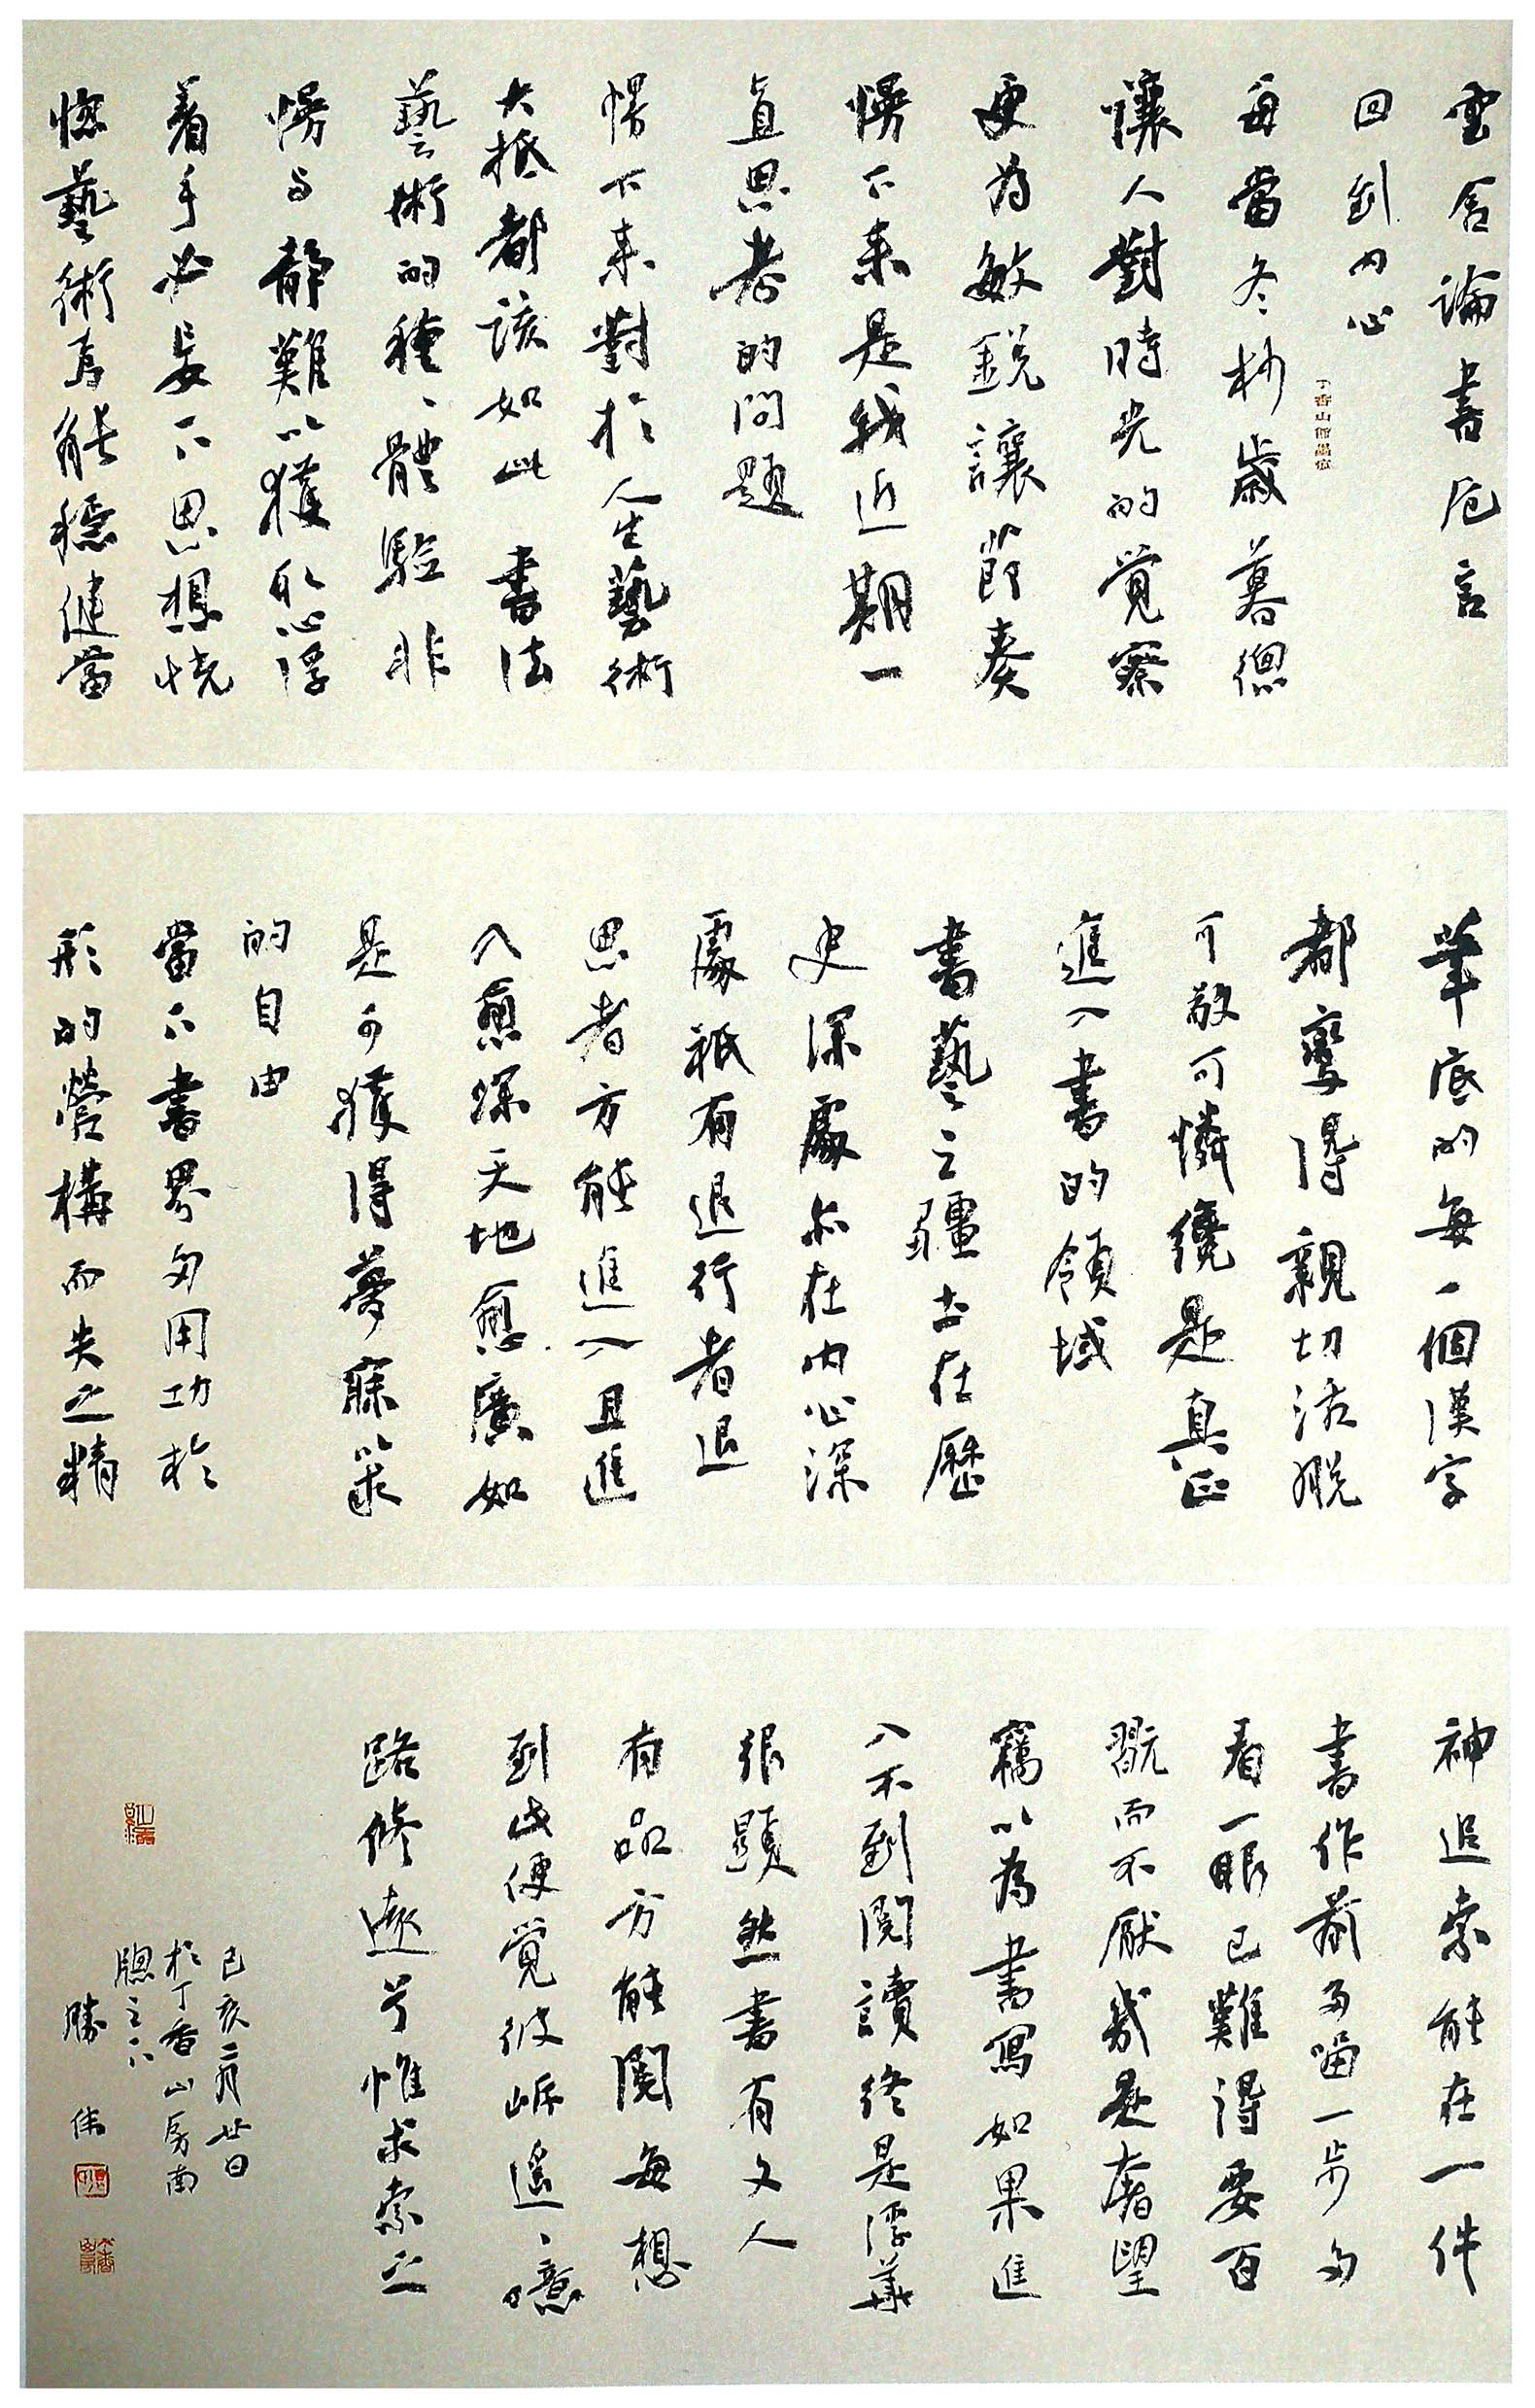 雲舍論書卮言
回到内心
每當冬杪歲暮總
讓人對時光的覺察
更为敏銳讓節奏
慢下来是我近期一
直思考的問題
慢下来對於人生藝術
大抵都該如此書法
藝術的種、體驗非
慢与靜難以獲取心浮
着手必妄不思想恍
惚藝術焉能穩健當
筆底的每一個漢字
都變得親切活脫
可敬可憐纔是真正
進入書的領域
書藝之疆土在歷
史深處亦在内心深
處祇有退行者退
思者方能進入且進
入愈深天地愈廣如
是方獲得夢寐以求
的自由
當下書界多用功於
形的營構而失之精
神追索能在一件
書作前多留一步多
看一眼已難得要百
翫而不厭或是奢望
竊以为書寫如果進
入不到閱讀終是浮華
很顯然書有文人
有品方能閱每想
到此便覺彼岸遥、噫
路修遠兮惟求索之
己亥二月廿日
於丁香山房南
牕之下
勝伟